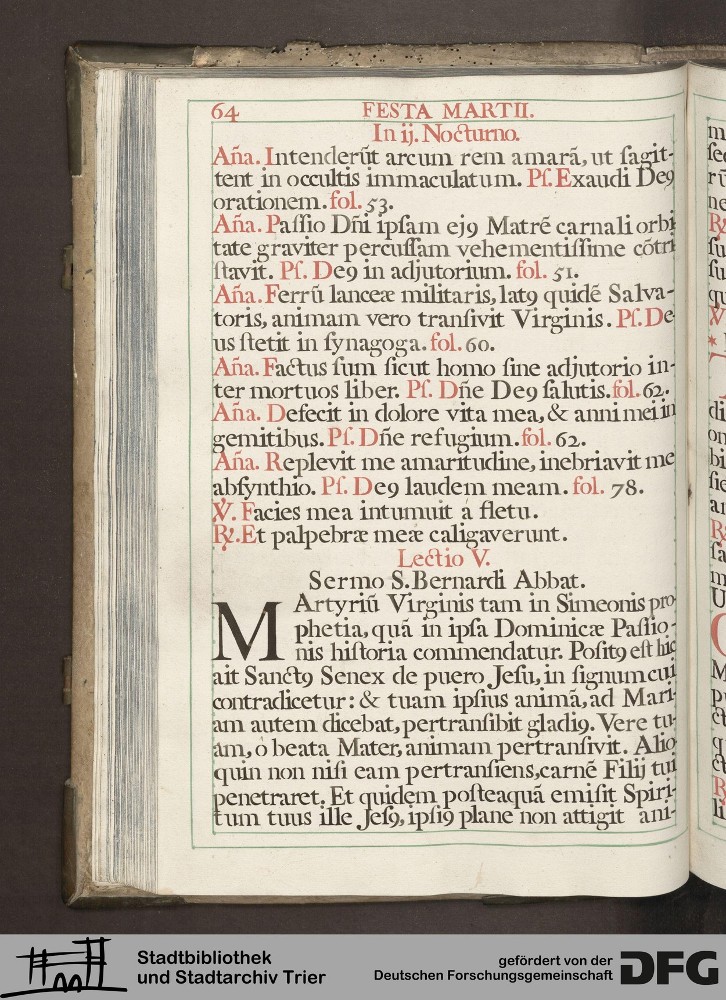 64 FESTA MARTII.
In ij. Nocturno.
Aña. Intenderūt arcum rem amarã, ut ſagit-
tent in occultis immaculatum. Pſ. Exaudi Deꝯ
orationem. fol. 53.
Aña. Paſſio Dñi ipſam ejꝯ Matrē carnali orbi
tate graviter percuſſam vehementiſſime cõtri
ſtavit. Pſ. Deꝯ in adjutorium. fol. 51.
Aña. Ferrū lanceæ militaris, latꝯ quidē Salva-
toris, animam vero tranſivit Virginis. Pſ. De-
us ſtetit in ſynagoga. fol. 60.
Aña. Factus ſum ſicut homo ſine adjutorio in-
ter mortuos liber. Pſ. Dñe Deꝯ ſalutis. fol. 62.
Aña. Defecit in dolore vita mea, & anni mei in
gemitibus. Pſ. Dñe refugium. fol. 62.
Aña. Replevit me amaritudine, inebriavit me
abſynthio. Pſ. Deꝯ laudem meam. fol. 78.
℣. Facies mea intumuit á fletu.
℟. Et palpebræ meæ caligaverunt.
Lectio V.
Sermo S. Bernardi Abbat.
MArtyriū Virginis tam in Simeonis pro-
phetia, quã in ipſa Dominicæ Paſſio-
nis hiſtoria commendatur. Poſitꝯ eſt hic
ait Sanctꝯ Senex de puero Jeſu, in ſignum cui
contradicetur: & tuam ipſius animã, ad Mari-
am autem dicebat, pertranſibit gladiꝯ. Vere tu-
am, ò beata Mater, animam pertranſivit. Alio
quin non niſi eam pertranſiens, carnē Filij tui
penetraret. Et quidem poſteaquã emiſit Spiri-
tum tuus ille Jeſꝯ, ipſiꝯ plane non attigit ani-
Stadtbibliothek
und Stadtarchiv Trier
gefördert von der
Deutschen Forschungsgemeinschaft
DFG